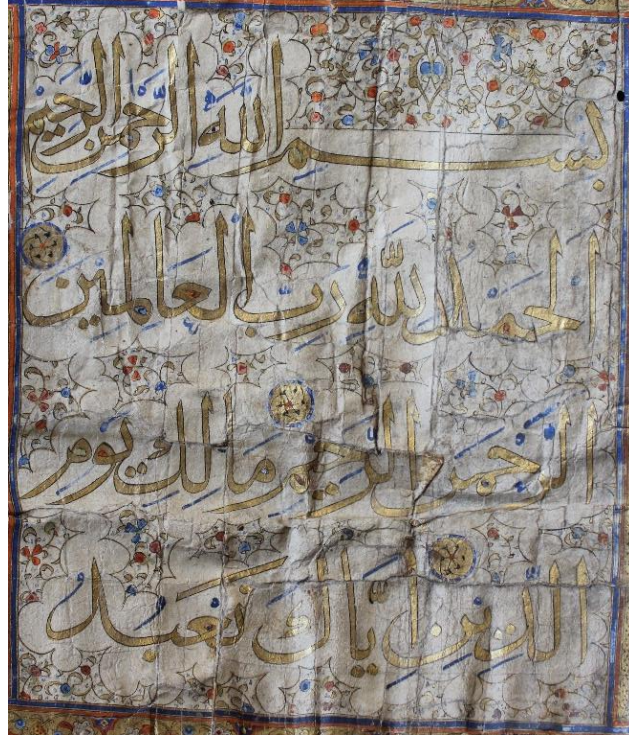 بسم الله الرحمن الرحيم
الحمد لله رب العالمين
الرحمن الرحيم مالك يوم
الدين اياك نعبد